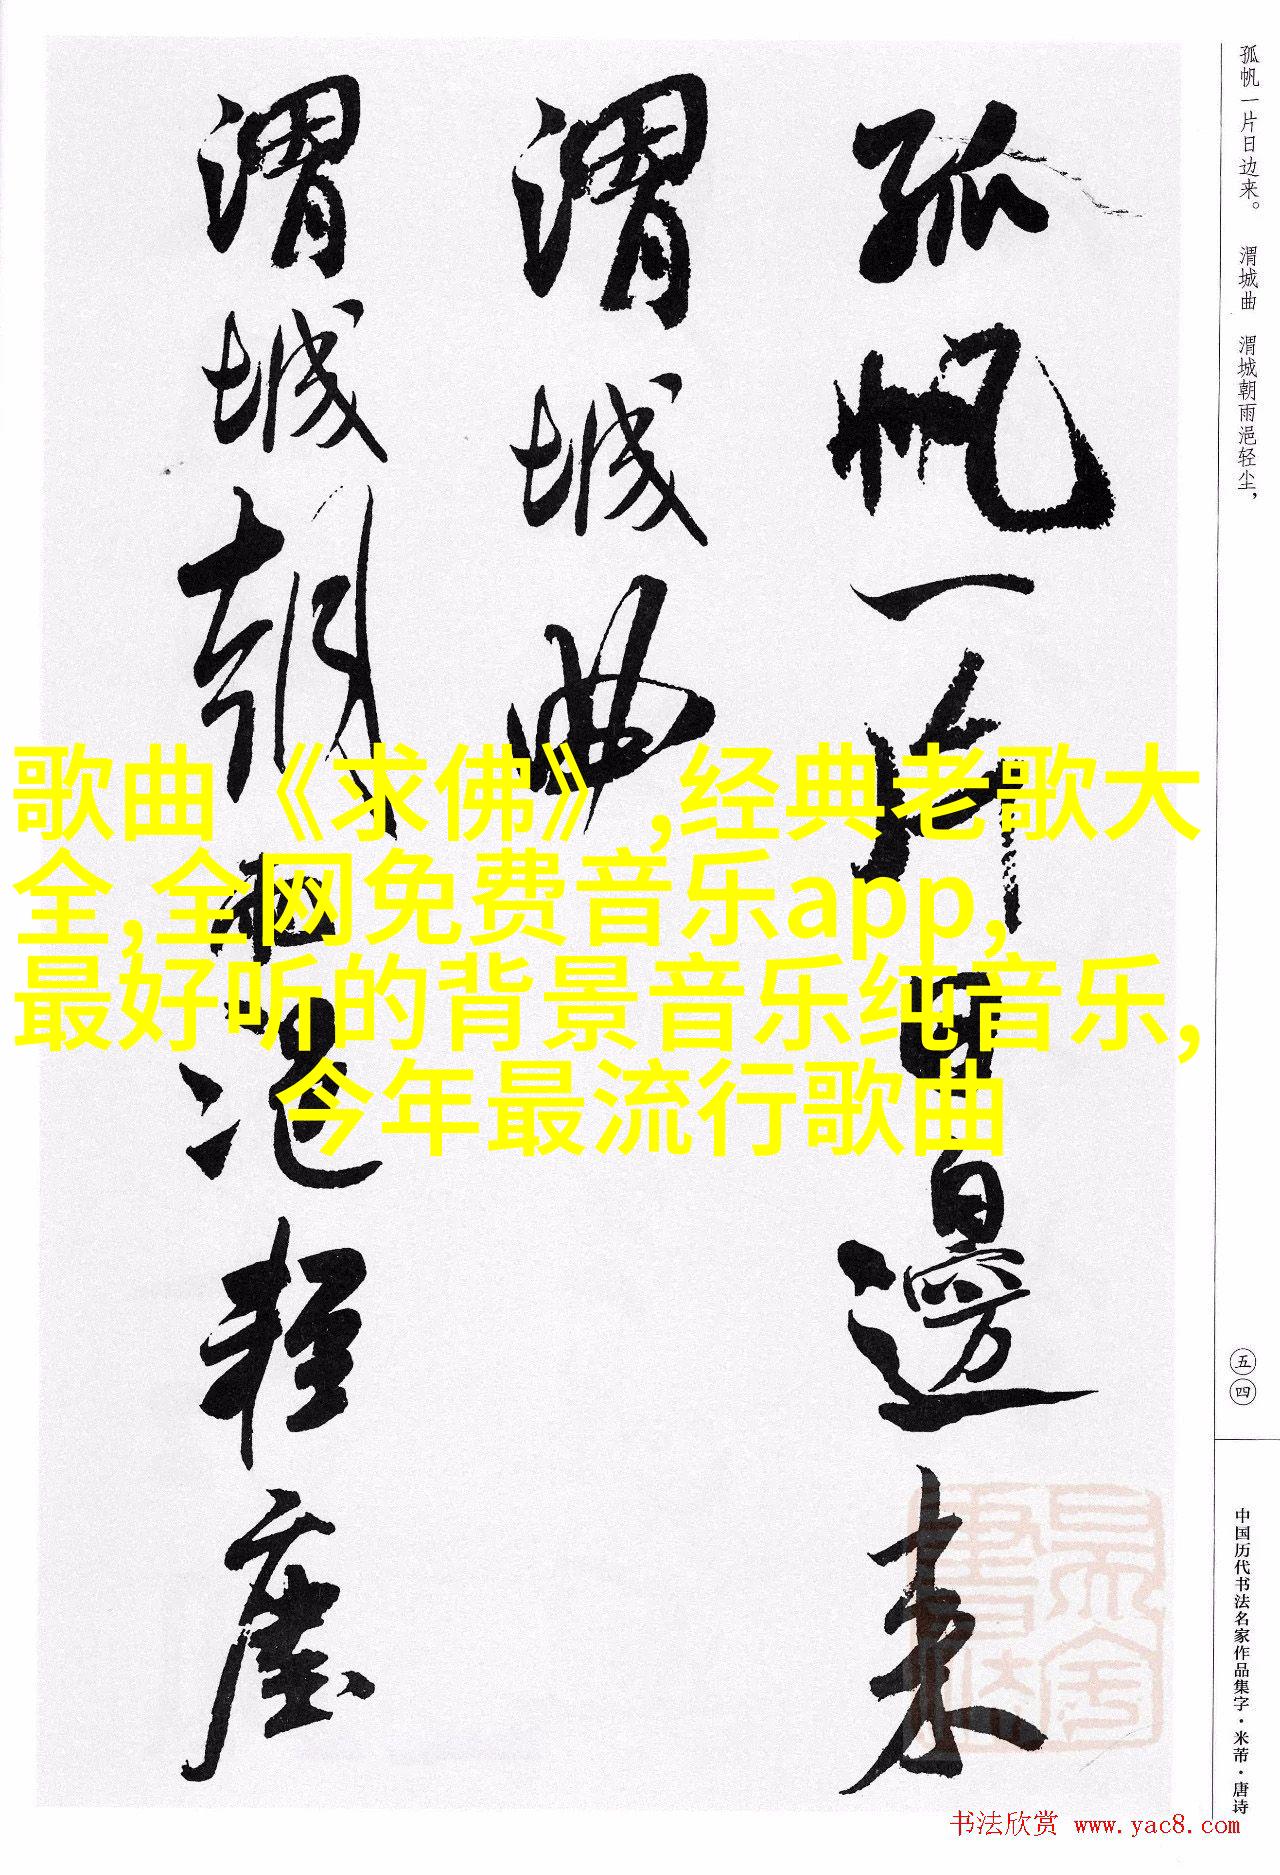 孤帆一片日边来。 渭城曲 渭城朝雨浥轻尘，
孤帆一片日邊来
渭城曲
渭城朝雨浥轻塵
歌曲《求佛》,经典老歌大
全,全网免费音乐app,
最好听的背景音乐纯音乐,
今年最流行歌曲
五四
中国历代书法名家作品集字·米芾·唐诗
书法欣赏 www.yac8.com